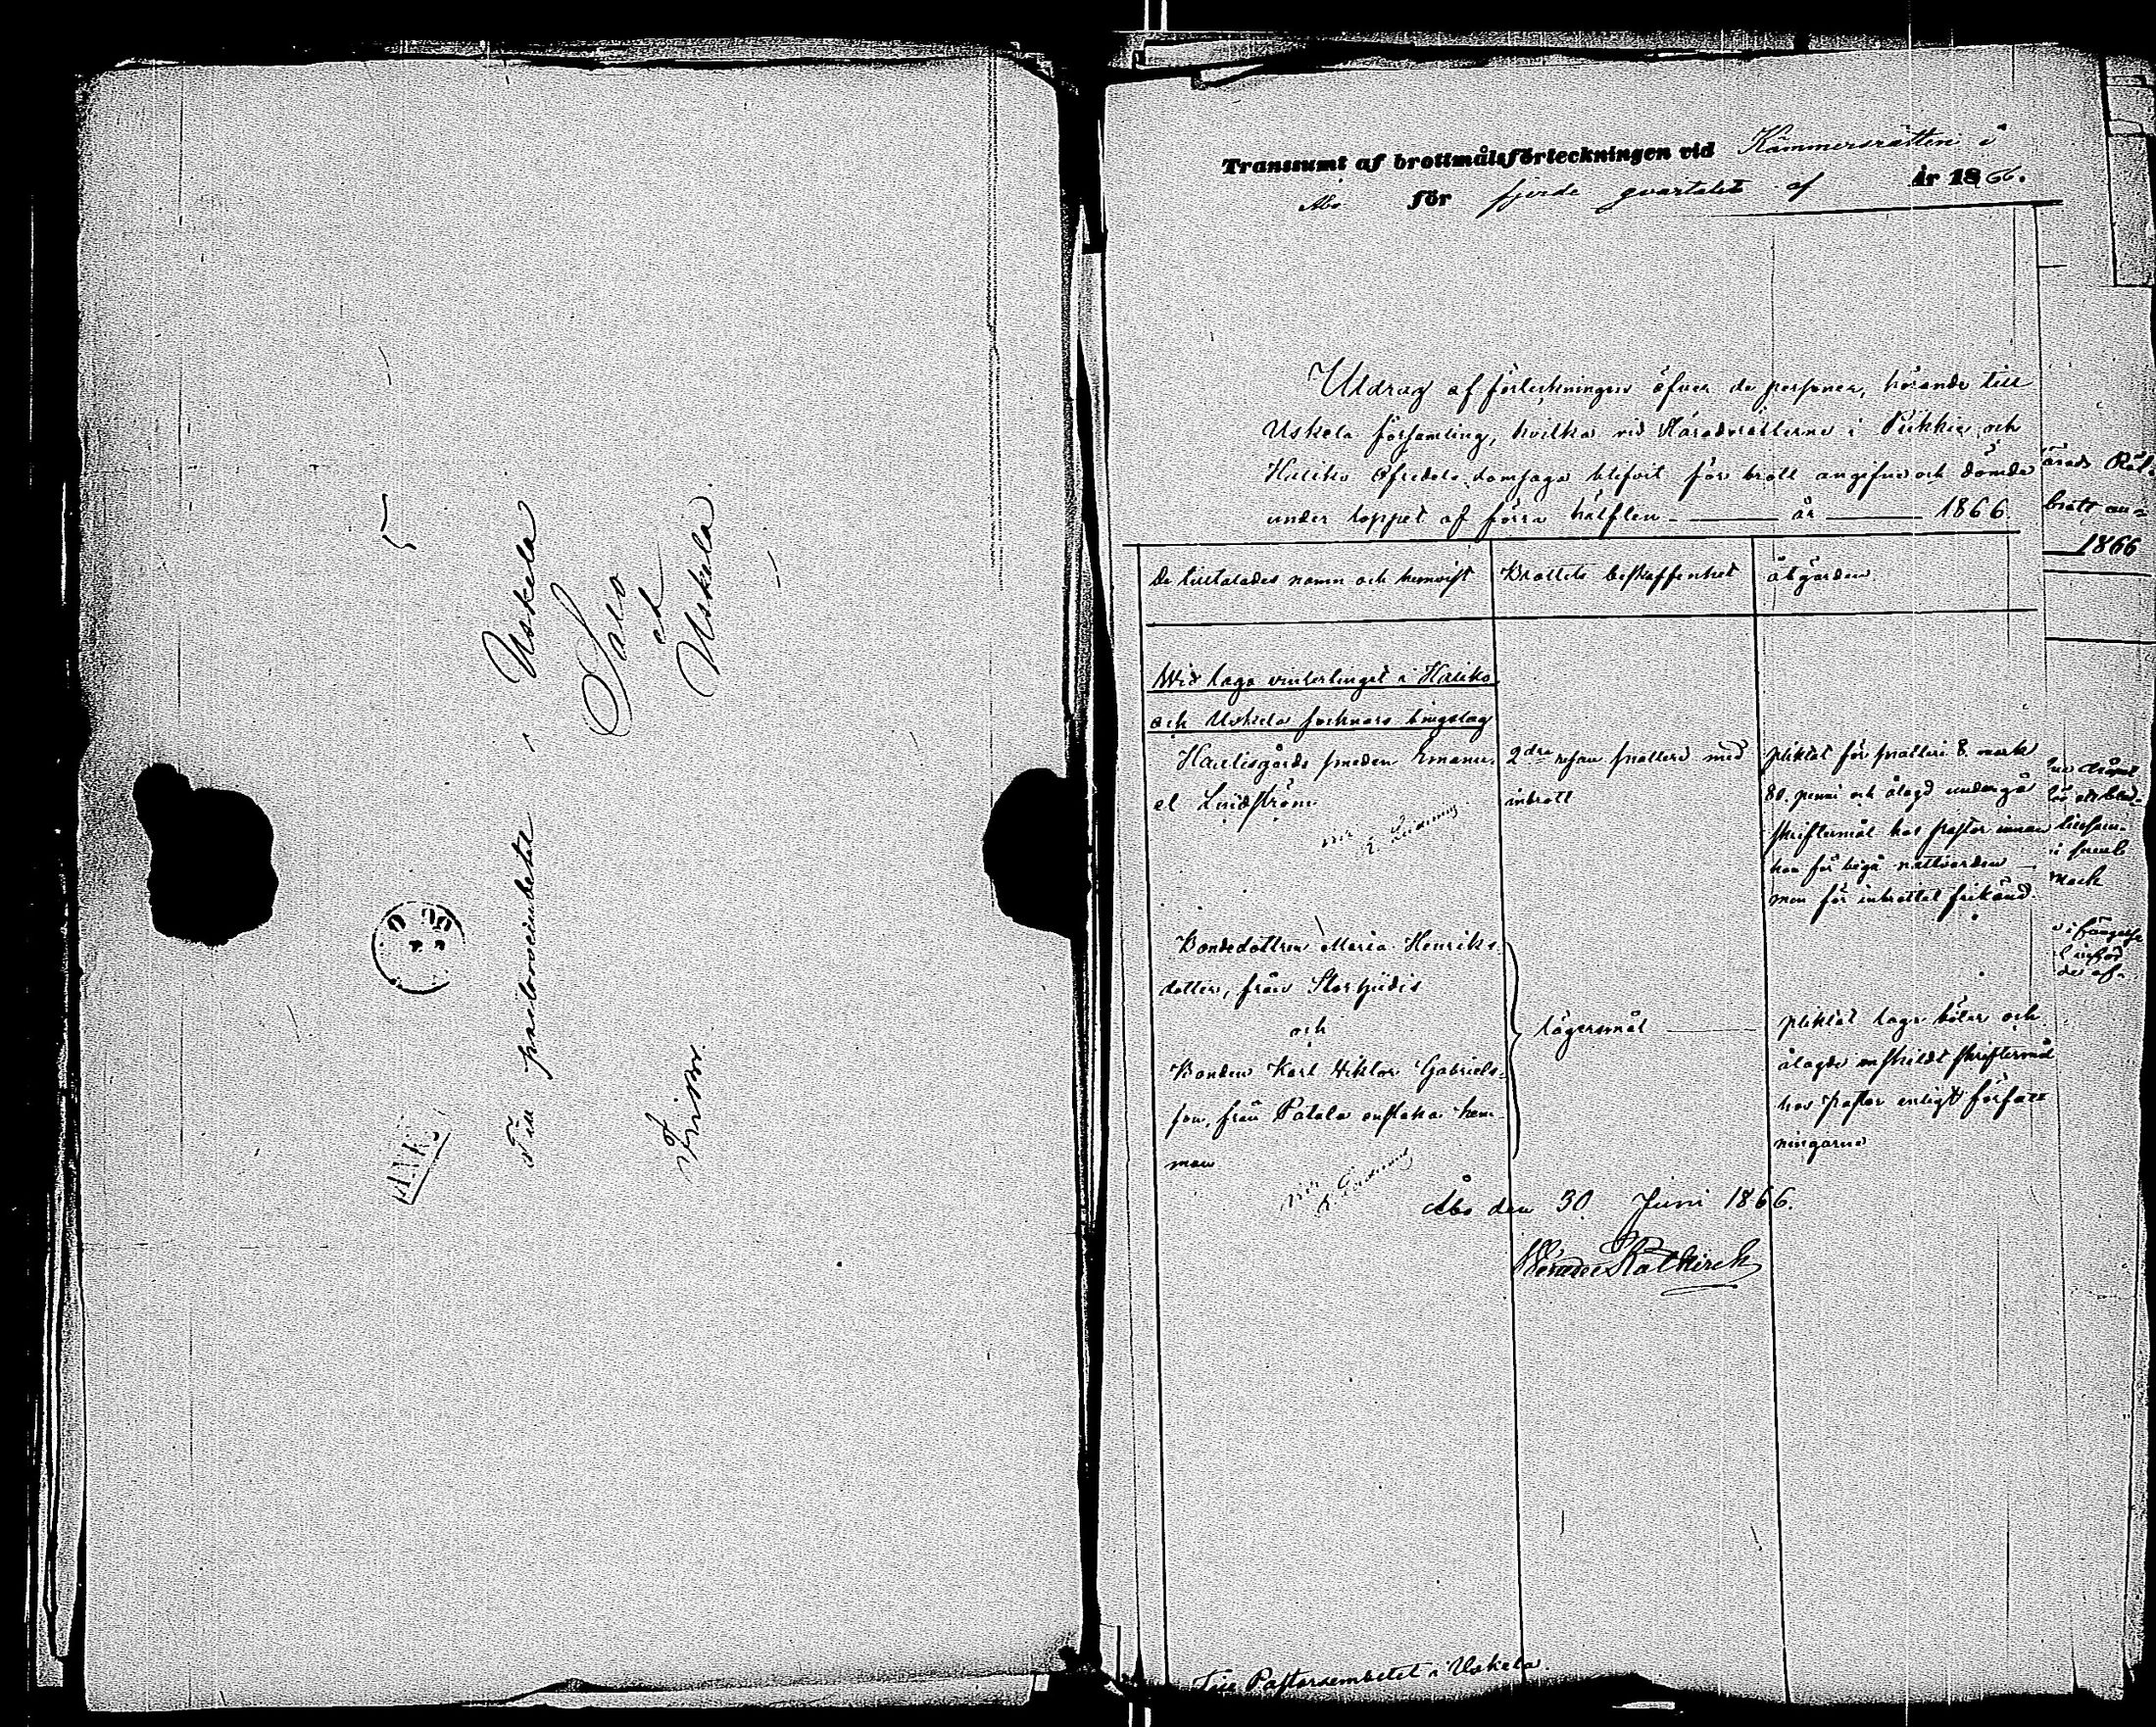 Till pastorsembetet i Uskela
Salo
och
Uskela
Frisbr.
ANK
Transsumt af brottmålsförteckningen vid Kämnersrätten i
Åbo för fjerde qvartalet af år 1866.
Utdrag af förteckningen öfver de personer, hörande till
Uskela församling, hvilka vid Häradsrätterne i Pikkie och
Halikko öfredels domsaga blifvit för brott angifne och dömda
under loppet af förra hälften år 1866.
De tilltalades namn och hemvist
Brottets beskaffenhet
åtgärden
Wid laga vintertinget i Halikko
och Uskela socknars tingslag
Smeden Emanu-
el Lindström
2dra resan snatteri med
inbrott
pliktat för snatteri 8 mark
80 penni och ålagd undergå
skriftermål hos pastor innan
han får begå nattvarden
men för inbrottet frikänd.
Bondedottren Maria Henriks
dotter, från Storhjidis
och
Bonden Karl Wiktor Gabriels-
son, från Patala enstaka hem-
man
lägersmål
pliktat laga böter och
ålagde enskildt skriftermål
hos pastor enligt författ
ningarne
Åbo den 30 Juni 1866.
Till Pastorsembetet i Uskela.
ärads Rät-
brott an-
1866
mark
i fängelse